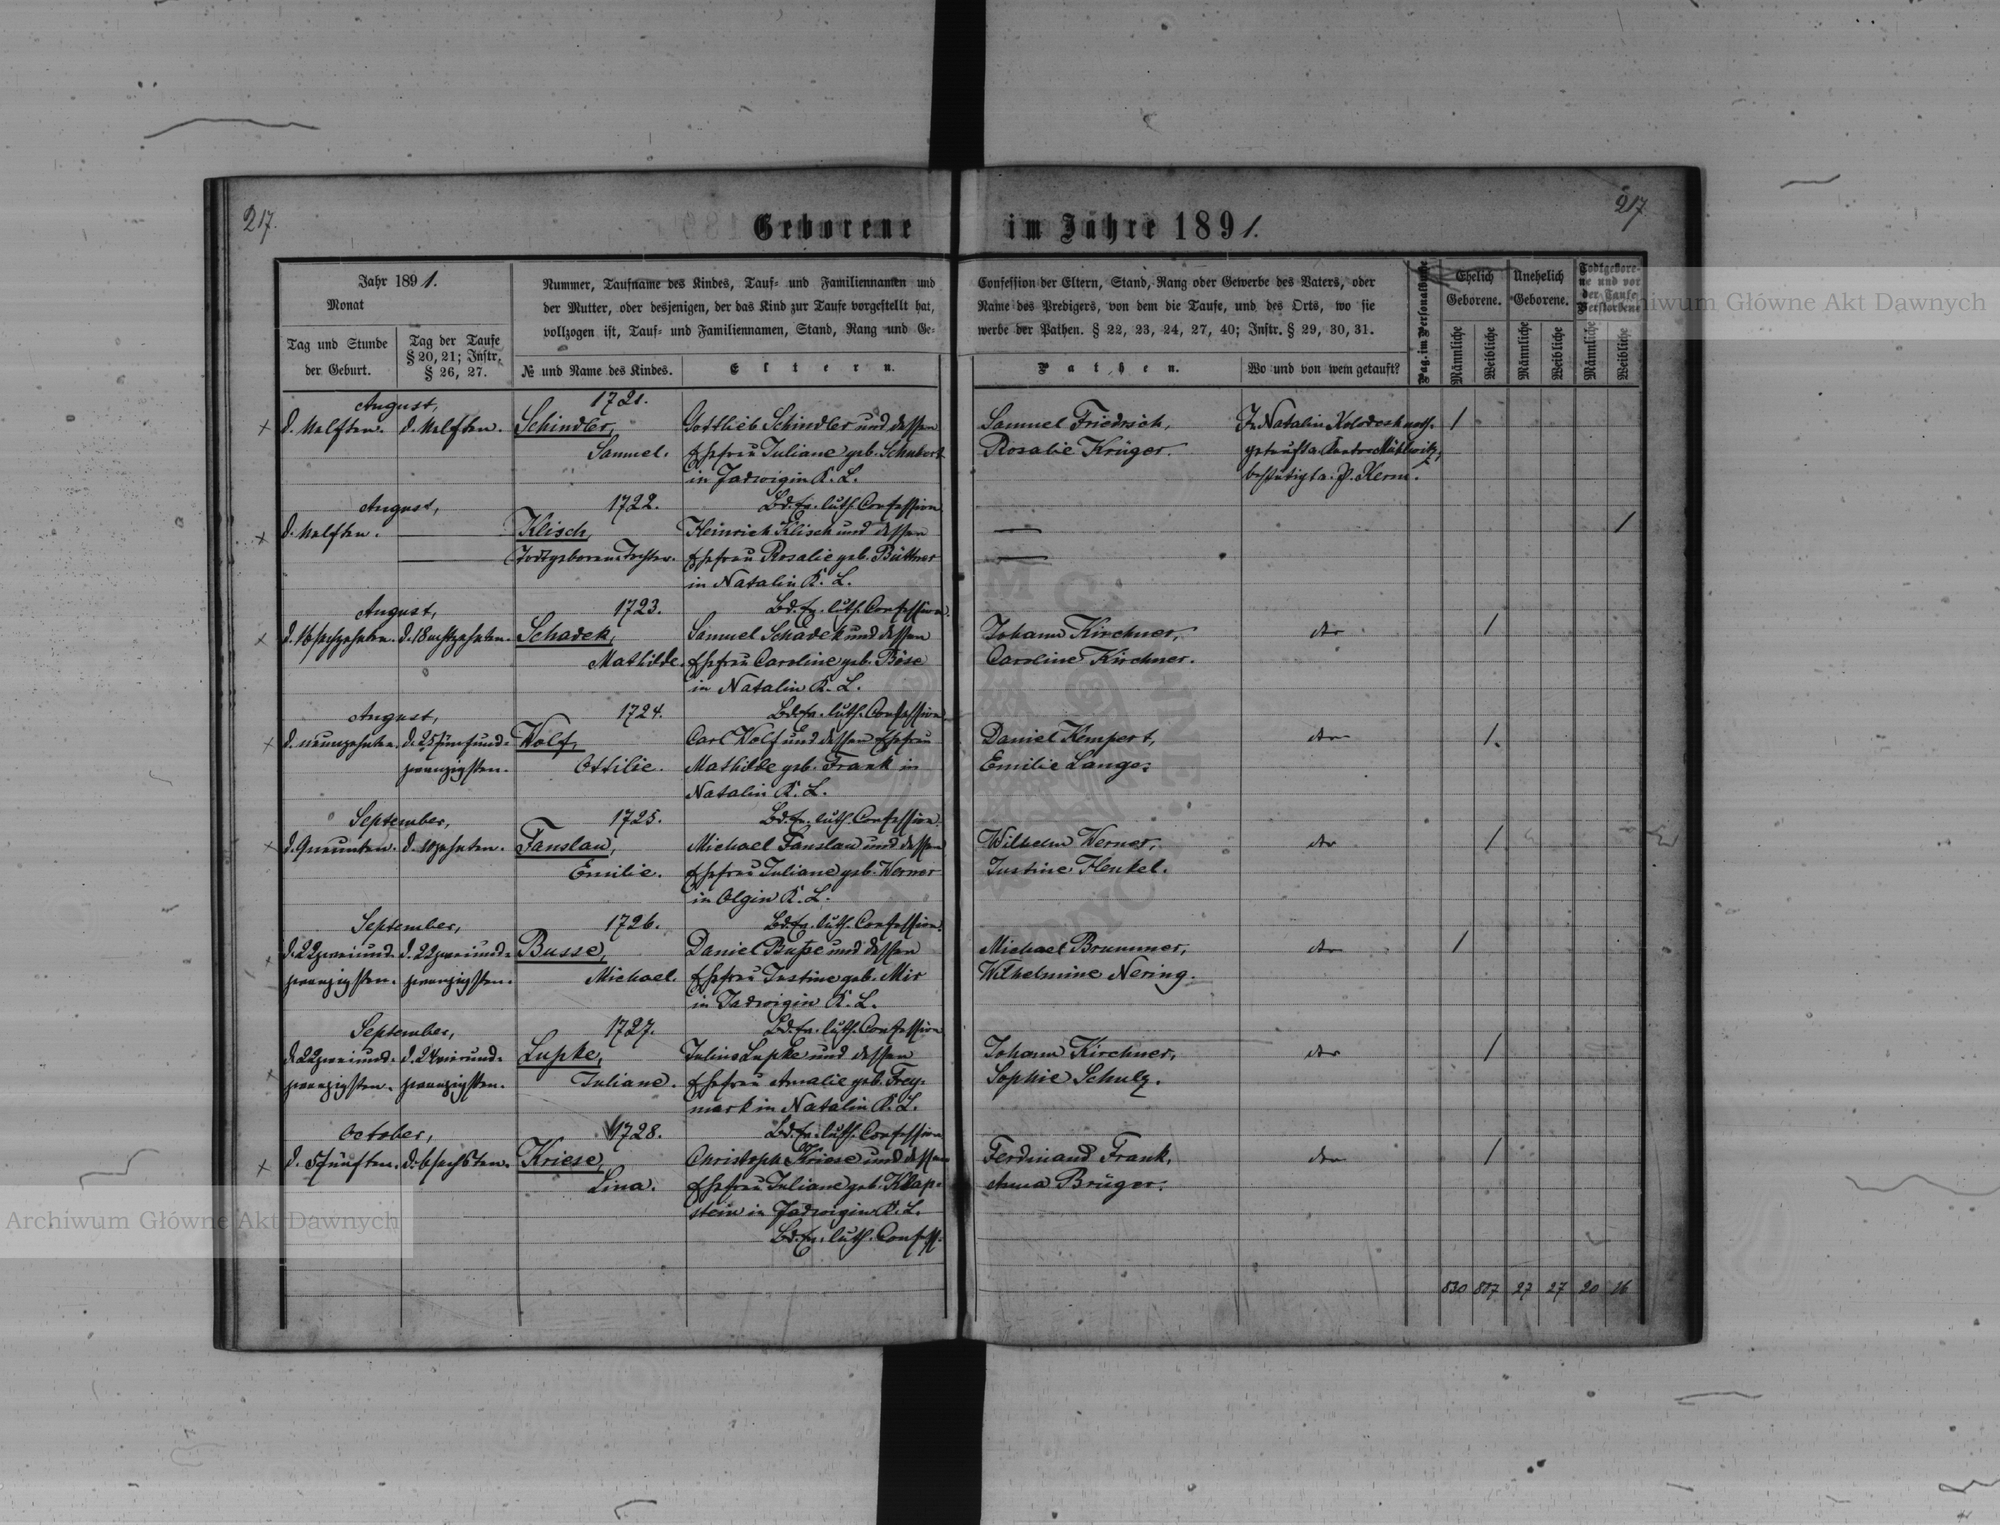 217.
217
Geborene im Jahre 1891.
Jahr 1891.
Monat
Tag und Stunde
der Geburt.
Tag der Taufe
§ 20, 21; Instr.
§ 26, 27.
Nummer, Taufname des Kindes, Tauf- und Familiennamen und
der Mutter, oder desjenigen, der das Kind zur Taufe vorgestellt hat,
vollzogen ist, Tauf- und Familiennamen, Stand, Rang und Ge-
№ und Name des Kindes.
Eltern.
Confession der Eltern, Stand, Rang oder Gewerbe des Vaters, oder
Name des Predigers, von dem die Taufe, und des Orts, wo sie
werbe der Pathen. § 22, 23, 24, 27, 40; Instr. § 29, 30, 31.
Pathen.
Wo und von wem getauft?
Pag. im Personalbuche
Ehelich
Geborene.
Unehelich
Geborene.
Todtgebore-
ne und vor
der Taufe
Verstorbene
Männliche
Weibliche
Männliche
Weibliche
Männliche
Weibliche
August,
1721.
d. elften. d. elften.
Schindler,
Samuel.
Gottlieb Schindler und dessen
Ehefrau Juliane geb. Schubert
in Jadwigin K. L.
Bd. Ev. luth. Confession
Samuel Friedrich,
Rosalie Krüger.
In Natalin Kolodesk noth-
getauft v. Cantor
bestätigt v. P. Kerm.
1
August,
1722.
d. elften.
Klisch,
Todtgeborene Tochter.
Heinrich Klisch und dessen
Ehefrau Rosalie geb. Büttner
in Natalin K. L.
Bd. Ev. luth. Confession
1
August,
1723.
d. 16 sechzehnten. d. 18 achtzehnten.
Schadek,
Mathilde.
Samuel Schadek und dessen
Ehefrau Caroline geb. Böse
in Natalin K. L.
Bd. Ev. luth. Confession
Johann Kirchner,
Caroline Kirchner.
dto
1
August,
1724.
d. neunzehnten. d. 25 fünfund-
zwanzigsten.
Wolf,
Ottilie.
Carl Wolf und dessen Ehefrau
Mathilde geb. Frank in
Natalin K. L.
Bd. Ev. luth. Confession
Daniel Kempert,
Emilie Lange.
dto
1.
September,
1725.
d. 9 neunten. d. 10 zehnten.
Fanslau,
Emilie.
Michael Fanslau und dessen
Ehefrau Juliane geb. Werner
in Olgin K. L.
Bd. Ev. luth. Confession
Wilhelm Werner,
Justine Henkel.
dto
1
September,
1726.
d. 22 zweiund- d. 22 zweiund-
zwanzigsten. zwanzigsten.
Busse,
Michael.
Daniel Buße und dessen
Ehefrau Justine geb. Mir
in Jadwigin K. L.
Bd. Ev. luth. Confession
Michael Brummer,
Wilhelmine Nering.
dto
1
September,
1727.
d. 22 zweiund- d. 24 vierund-
zwanzigsten. zwanzigsten.
Lupke,
Juliane.
Julius Lupke und dessen
Ehefrau Amalie geb. Frey-
mark in Natalin K. L.
Bd. Ev. luth. Confession
Johann Kirchner,
Sophie Schulz.
dto
1
October,
1728.
d. 5 fünften. d. 6 sechsten.
Kriese,
Lina.
Christoph Kriese und dessen
Ehefrau Juliane geb. Klap-
stein in Jadwigin K. L.
Bd. Ev. luth. Confess.
Ferdinand Frank,
Anna Brüger.
dto
1
830 807 27 27 20 16
Archiwum Główne Akt Dawnych
Archiwum Główne Akt Dawnych